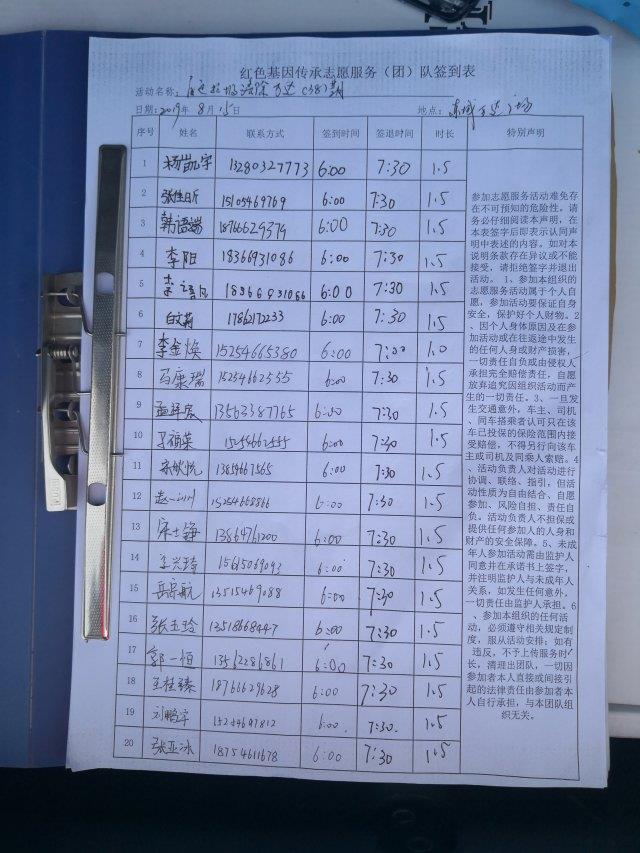 红色基因传承志愿服务（团）队签到表
活动名称：
日期：2019年8月15日 地点：东城万达广场
序号 姓名 联系方式 签到时间 签退时间 时长 特别声明
1 杨凯宇 13280327773 6:00 7:30 1.5
2 张佳昕 15105469769 6:00 7:30 1.5
3 韩语端 18766629379 6:00 7:30 1.5
4 李阳 18366931086 6:00 7:30 1.5
5 李 18366931086 6:00 7:30 1.5
6 白文莉 17862172233 6:00 7:30 1.5
7 李金焕 15254665380 6:00 7:00 1.0
8 马康瑞 15254662555 6:00 7:30 1.5
9 孟祥宸 13563387765 6:00 7:30 1.5
10 15254662555 6:00 7:30 1.5
11 13859667565 6:00 7:30 1.5
12 赵一川 15254668866 6:00 7:30 1.5
13 宋士铮 13864761200 6:00 7:30 1.5
14 王兴琦 15615069093 6:00 7:30 1.5
15 岳宗航 13515469088 6:00 7:30 1.5
16 张玉玲 13518668447 6:00 7:30 1.5
17 郭一恒 13462286861 6:00 7:30 1.5
18 王桂臻 18766629628 6:00 7:30 1.5
19 刘鹏宇 15254697812 6:00 7:30 1.5
20 张亚冰 18754611678 6:00 7:30 1.5
参加志愿服务活动难免存
在不可预知的危险性。请
务必仔细阅读本声明，在
本表签字后即表示认同声
明中表述的内容。如对本
说明条款存在异议或不能
接受，请拒绝签字并退出
活动。 1、参加本组织的
志愿服务活动属于个人自
愿，参加活动要保证自身
安全，保护好个人财物。2
、因个人身体原因及在参
加活动或在往返途中发生
的任何人身或财产损害，
一切责任自负或由侵权人
承担完全赔偿责任，自愿
放弃追究因组织活动而产
生的一切责任。3、一旦发
生交通意外，车主、司机
、同车搭乘者认可只在该
车已投保的保险范围内接
受赔偿，不得另行向该车
主或司机及同乘人索赔。4
、活动负责人对活动进行
协调、联络、指引，但活
动性质为自由结合、自愿
参加、风险自担、责任自
负。活动负责人不担保或
提供任何参加人的人身和
财产的安全保障。5、未成
年人参加活动需由监护人
同意并在承诺书上签字，
并注明监护人与未成年人
关系，如发生任何意外，
一切责任由监护人承担。6
、参加本组织的任何活
动，必须遵守相关规定制
度，服从活动安排；如有
违反，不予上传服务时
长，清理出团队，一切因
参加者本人直接或间接引
起的法律责任由参加者本
人自行承担，与本团队组
织无关。